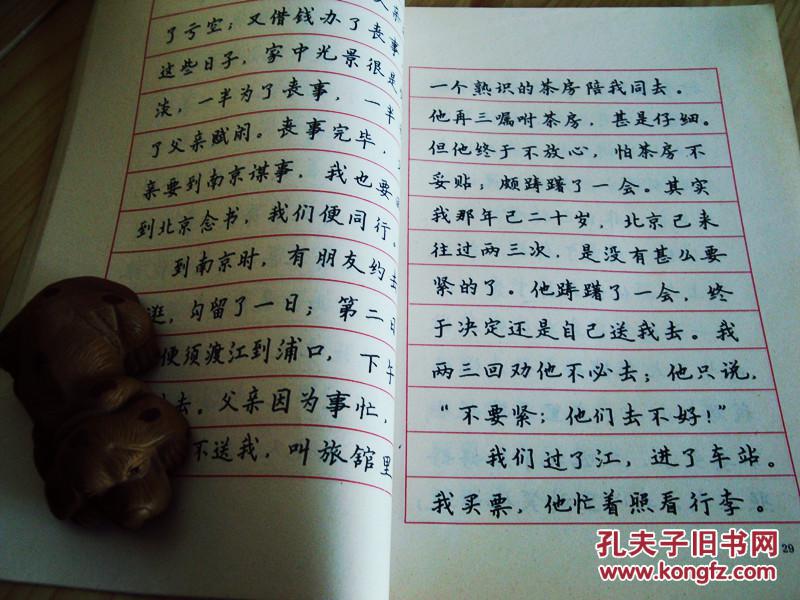 了亏空；又借钱办了丧事
这些日子，家中光景很是
淡，一半为了丧事，一半
了父亲赋闲。丧事完毕，
亲要到南京谋事，我也要
到北京念书，我们便同行。
到南京时，有朋友约去
逛，勾留了一日；第二日
便须渡江到浦口，下午
去。父亲因为事忙，
不送我，叫旅馆里
一个熟识的茶房陪我同去。
他再三嘱咐茶房，甚是仔细。
但他终于不放心，怕茶房不
妥贴；颇踌躇了一会。其实
我那年已二十岁，北京已来
往过两三次，是没有甚么要
紧的了。他踌躇了一会，终
于决定还是自己送我去。我
两三回劝他不必去；他只说，
“不要紧；他们去不好！”
我们过了江，进了车站。
我买票，他忙着照看行李。
29
孔夫子旧书网
www.kongfz.com